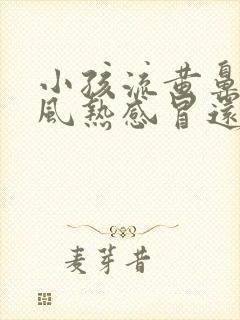 小孩流黄鼻
风热感冒还
麦芽昔